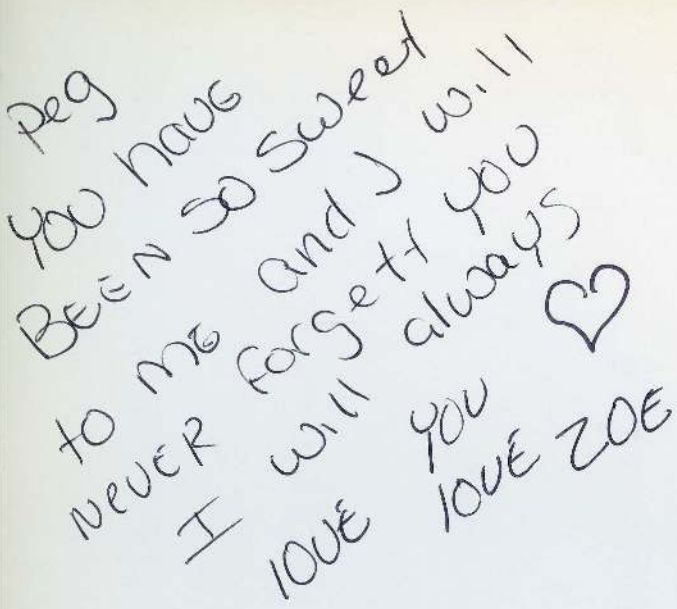 Peg
YOU have
BEEN SO Sweet
to me and I will
Never forgett you
I will always
love you
love ZOE